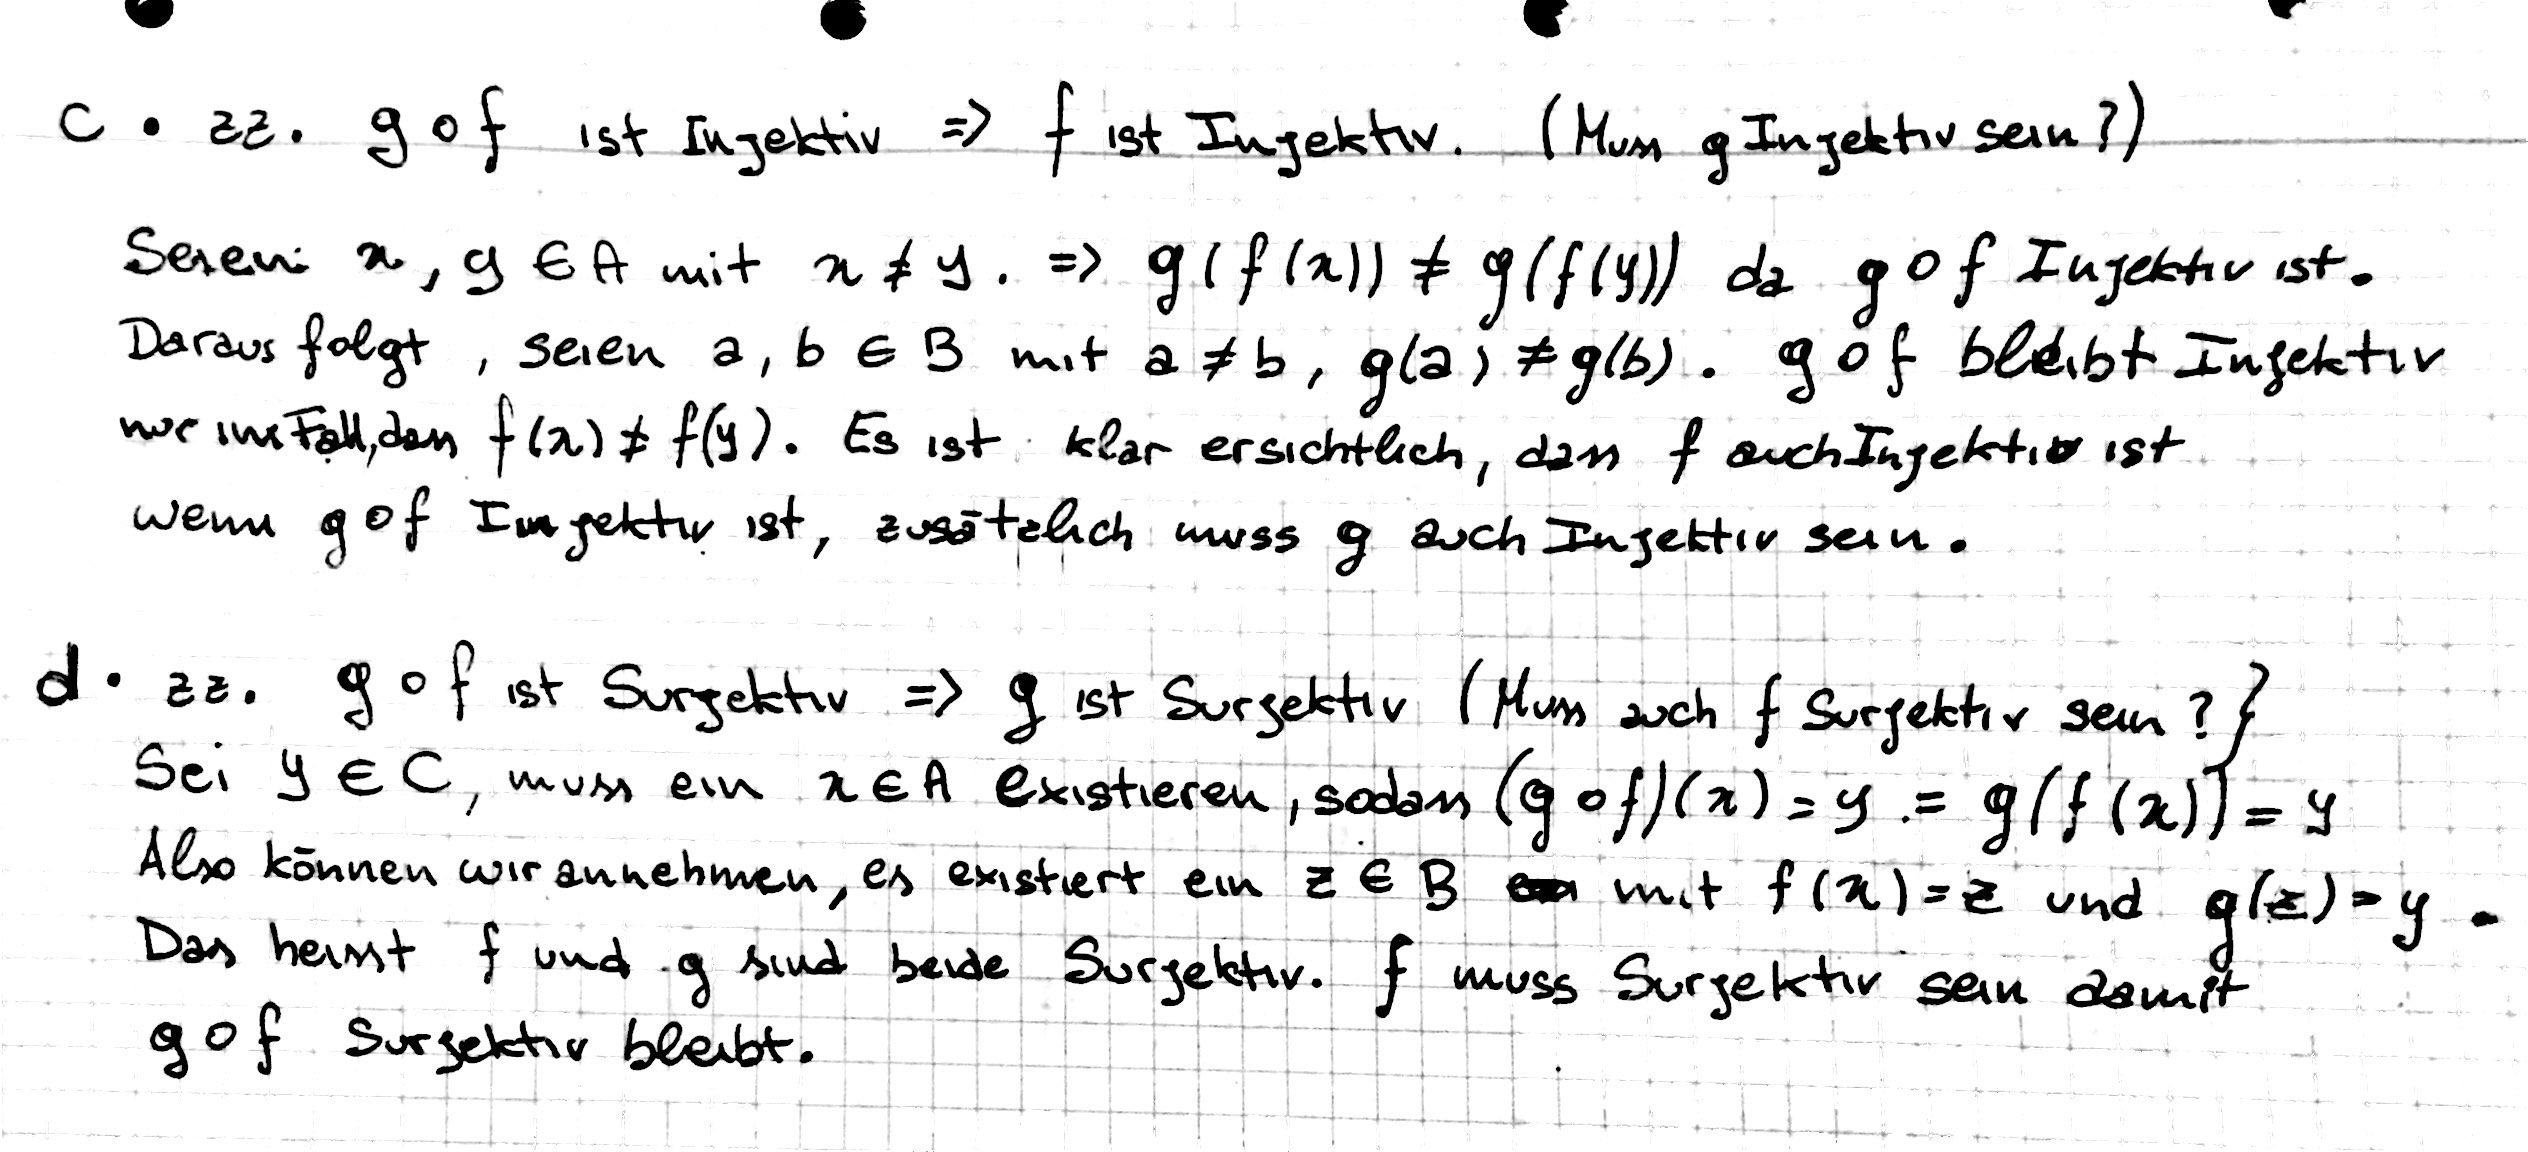 c • zz. g ∘ f ist Injektiv => f ist Injektiv. (Muss g Injektiv sein?)
Seien x, y ∈ A mit x ≠ y. => g(f(x)) ≠ g(f(y)) da g ∘ f Injektiv ist.
Daraus folgt, seien a, b ∈ B mit a ≠ b, g(a) ≠ g(b). g ∘ f bleibt Injektiv
nur im Fall, dass f(x) ≠ f(y). Es ist klar ersichtlich, dass f auch Injektiv ist
wenn g ∘ f Injektiv ist, zusätzlich muss g auch Injektiv sein.
d • zz. g ∘ f ist Surjektiv => g ist Surjektiv (Muss auch f Surjektiv sein?}
Sei y ∈ C, muss ein x ∈ A existieren, sodass (g ∘ f)(x) = y .= g(f(x)) = y
Also können wir annehmen, es existiert ein z ∈ B mit f(x) = z und g(z) = y.
Das heisst f und g sind beide Surjektiv. f muss Surjektiv sein damit
g ∘ f Surjektiv bleibt.